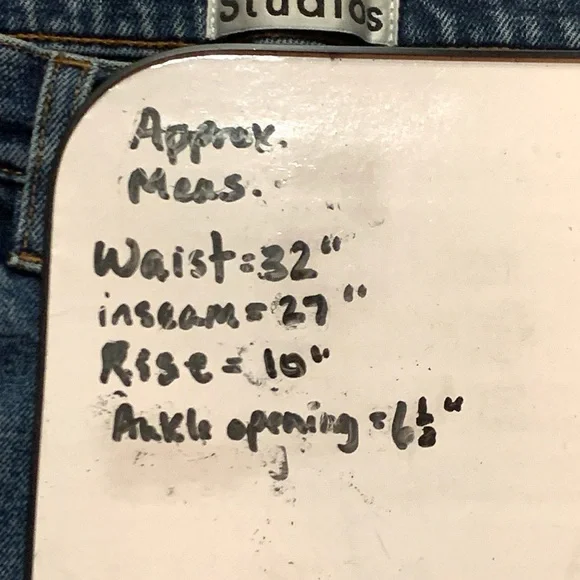 Studios
Approx.
Meas.
Waist=32"
inseam=27"
Rise= 10"
Ankle opening=6½"